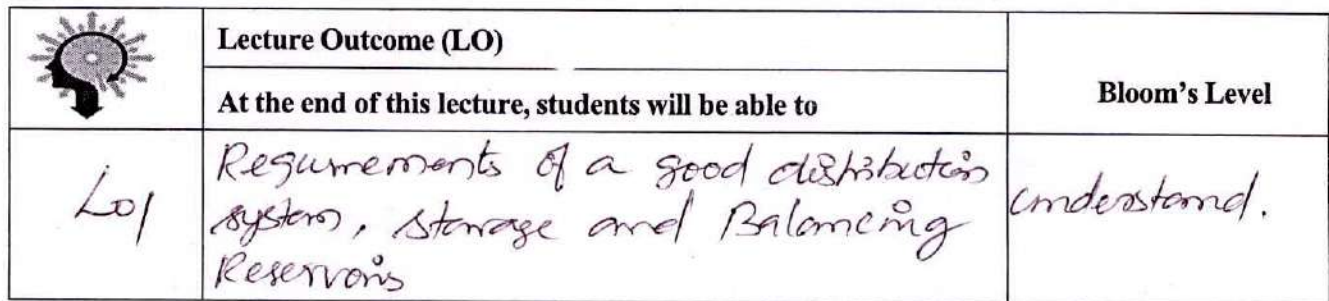 Lecture Outcome (LO)
At the end of this lecture, students will be able to
Bloom's Level
LO1
Requirements of a good distribution
system, storage and Balancing
Reservoirs
understand.